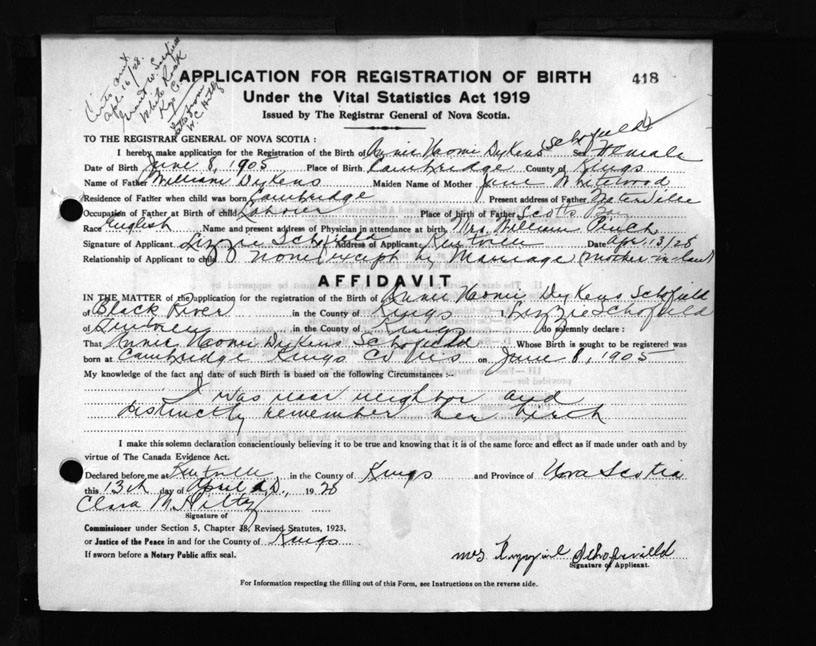 Apr 16/28.
White Rock
W. C. Hiltz
APPLICATION FOR REGISTRATION OF BIRTH 418
Under the Vital Statistics Act 1919
Issued by The Registrar General of Nova Scotia.
TO THE REGISTRAR GENERAL OF NOVA SCOTIA :
I hereby make application for the Registration of the Birth of Annie Naomi Dykens (Schofield) Sex Female
Date of Birth June 8, 1905 Place of Birth Cambridge County of Kings
Name of Father William Dykens Maiden Name of Mother Jane
Residence of Father when child was born Cambridge Present address of Father Waterville
Occupation of Father at Birth of child Laborer Place of birth of Father Scots Bay
Race English Name and present address of Physician in attendance at birth Mrs. William
Signature of Applicant Lizzie Schofield Address of Applicant Kentville Date Apr. 13/28
Relationship of Applicant to child None (except by Marriage (Mother-in-law)
AFFIDAVIT
IN THE MATTER of the application for the registration of the Birth of Annie Naomi Dykens Schofield
of Black River in the County of Kings I, Lizzie Schofield
of in the County of Kings do solemnly declare :
That Annie Naomi Dykens Schofield Whose Birth is sought to be registered was
born at Cambridge Kings Co N.S. on June 8, 1905
My knowledge of the fact and date of such Birth is based on the following Circumstances :—
I was near neighbor and
distinctly remember her birth
I make this solemn declaration conscientiously believing it to be true and knowing that it is of the same force and effect as if made under oath and by
virtue of The Canada Evidence Act.
Declared before me at Kentville in the County of Kings and Province of Nova Scotia
this 13th day of April A.D., 1928
Clara M. Hiltz
Signature of
Commissioner under Section 5, Chapter 38, Revised Statutes, 1923,
or Justice of the Peace in and for the County of Kings
If sworn before a Notary Public affix seal.
Mrs Schofield
Signature of Applicant.
For Information respecting the filling out of this Form, see Instructions on the reverse side.